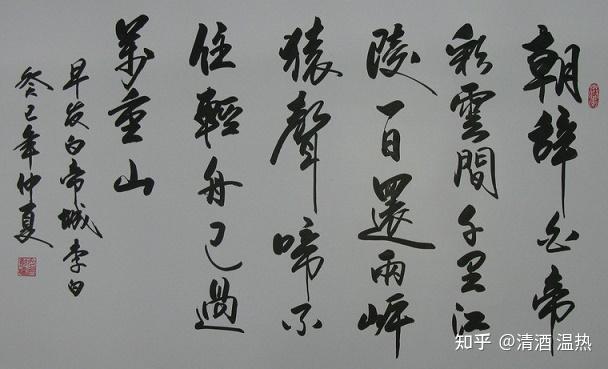 朝辭白帝
彩雲間千里江
陵一日還兩岸
猿聲啼不
住輕舟已過
萬重山
早发白帝城李白
癸巳年仲夏
知乎 @清酒 温热